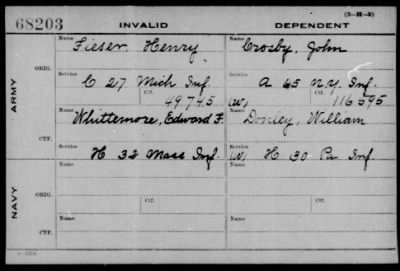 (3-H-5)
68203 INVALID DEPENDENT
ARMY
NAVY
ORIG.
Name Fieser Henry
Name Crosby, John
Service C 27 Mich Inf.
Service A 65 N.Y. Inf.
Ctf. 49745
(W) Ctf. 116595
CTF.
Name Whittemore, Edward F.
Name Donley, William
Service H 32 Mass Inf.
Service (W) H 30 Pa Inf.
ORIG.
Name Ctf.
Name Ctf.
CTF.
Name
Name